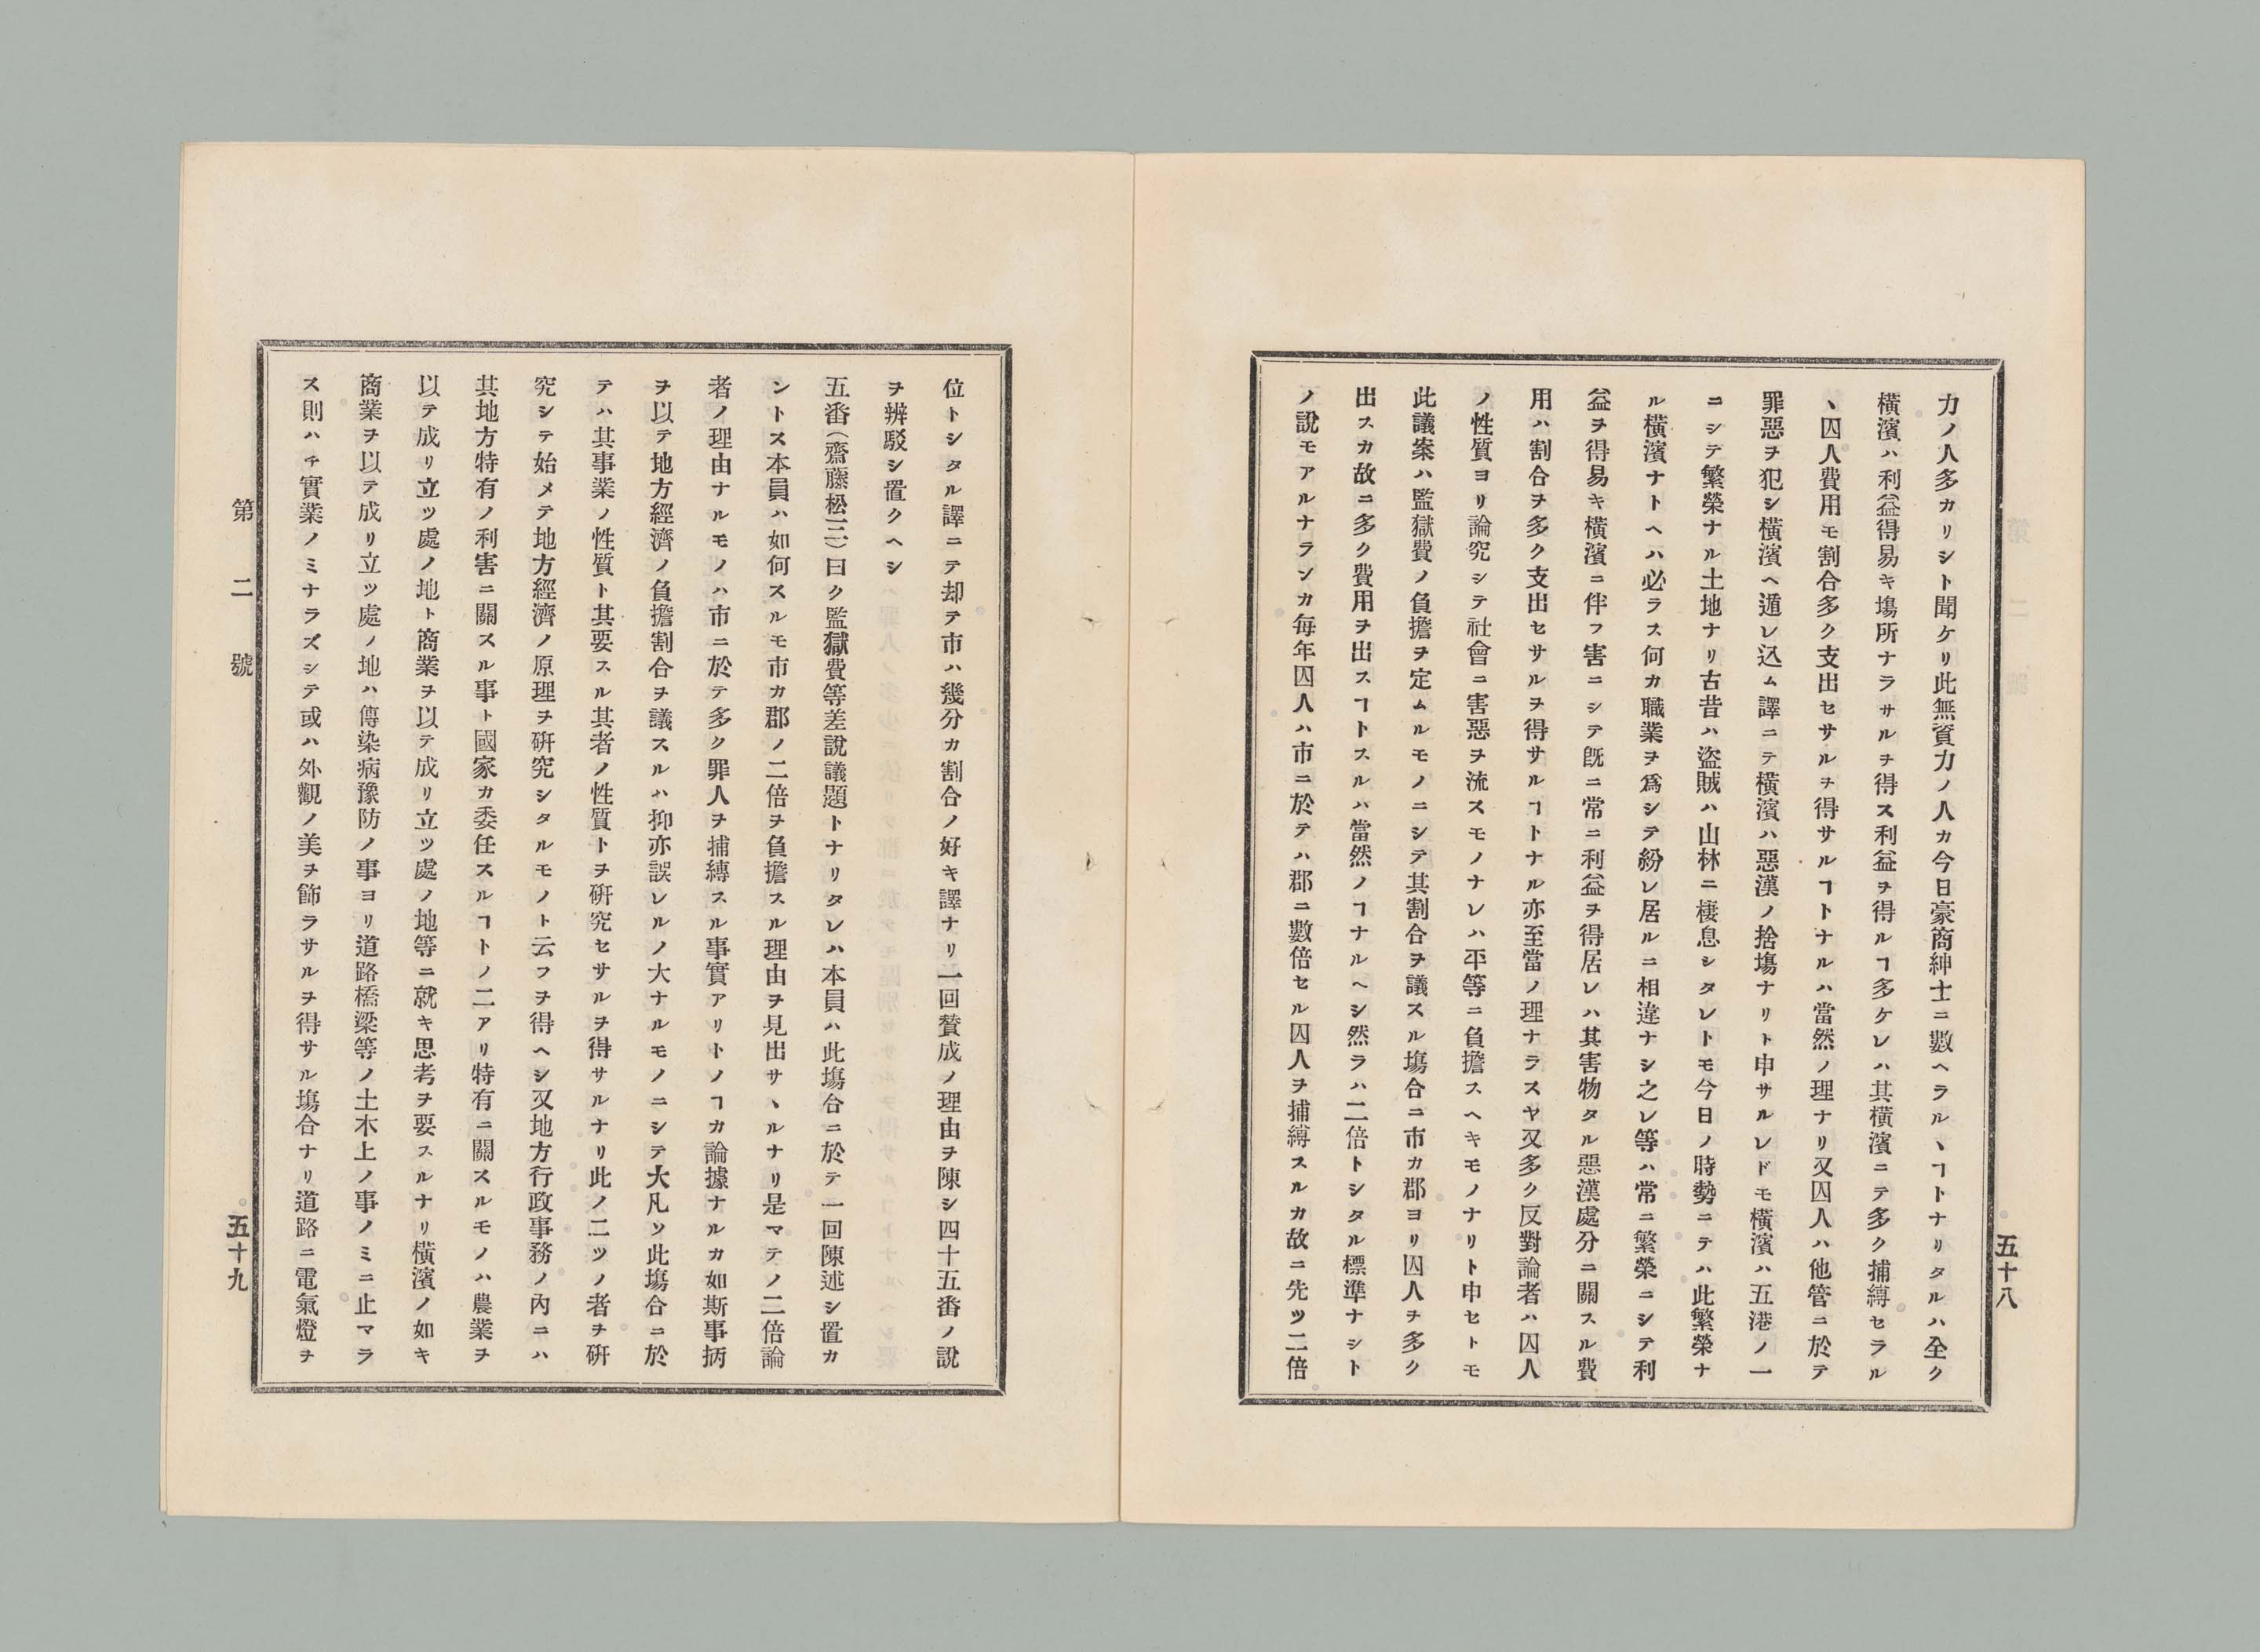 力ノ人多カリシト聞ケリ此無資力ノ人カ今日豪商紳士ニ數ヘラルヽヿトナリタルハ全ク
橫濱ハ利益得易キ塲所ナラサルヲ得ス利益ヲ得ルヿ多ケレハ其橫濱ニテ多ク捕縛セラル
ヽ囚人費用モ割合多ク支出セサルヲ得サルヿトナルハ當然ノ理ナリ又囚人ハ他管ニ於テ
罪惡ヲ犯シ橫濱ヘ遁レ込ム譯ニテ橫濱ハ惡漢ノ捨塲ナリト申サルレドモ橫濱ハ五港ノ一
ニシテ繁榮ナル土地ナリ古昔ハ盜賊ハ山林ニ棲息シタレトモ今日ノ時勢ニテハ此繁榮ナ
ル橫濱ナトヘハ必ラス何カ職業ヲ爲シテ紛レ居ルニ相違ナシ之レ等ハ常ニ繁榮ニシテ利
益ヲ得易キ橫濱ニ伴フ害ニシテ旣ニ常ニ利益ヲ得居レハ其害物タル惡漢處分ニ關スル費
用ハ割合ヲ多ク支出セサルヲ得サルヿトナル亦至當ノ理ナラスヤ又多ク反對論者ハ囚人
ノ性質ヨリ論究シテ社會ニ害惡ヲ流スモノナレハ平等ニ負擔スヘキモノナリト申セトモ
此議案ハ監獄費ノ負擔ヲ定ムルモノニシテ其割合ヲ議スル塲合ニ市カ郡ヨリ囚人ヲ多ク
出スカ故ニ多ク費用ヲ出スヿトスルハ當然ノヿナルヘシ然ラハ二倍トシタル標準ナシト
ノ說モアルナランカ每年囚人ハ市ニ於テハ郡ニ數倍セル囚人ヲ捕縛スルカ故ニ先ツ二倍
五十八
位トシタル譯ニテ却テ市ハ幾分カ割合ノ好キ譯ナリ一回贊成ノ理由ヲ陳シ四十五番ノ說
ヲ辨駁シ置クヘシ
五番（齋藤松三）曰ク監獄費等差說議題トナリタレハ本員ハ此塲合ニ於テ一回陳述シ置カ
ントス本員ハ如何スルモ市カ郡ノ二倍ヲ負擔スル理由ヲ見出サヽルナリ是マテノ二倍論
者ノ理由ナルモノハ市ニ於テ多ク罪人ヲ捕縛スル事實アリトノヿカ論據ナルカ如斯事抦
ヲ以テ地方經濟ノ負擔割合ヲ議スルハ抑亦誤レルノ大ナルモノニシテ大凡ソ此塲合ニ於
テハ其事業ノ性質ト其要スル其者ノ性質トヲ硏究セサルヲ得サルナリ此ノ二ツノ者ヲ硏
究シテ始メテ地方經濟ノ原理ヲ硏究シタルモノト云フヲ得ヘシ又地方行政事務ノ內ニハ
其地方特有ノ利害ニ關スル事ト國家カ委任スルヿトノ二アリ特有ニ關スルモノハ農業ヲ
以テ成リ立ツ處ノ地ト商業ヲ以テ成リ立ツ處ノ地等ニ就キ思考ヲ要スルナリ橫濱ノ如キ
商業ヲ以テ成リ立ツ處ノ地ハ傳染病豫防ノ事ヨリ道路橋梁等ノ土木上ノ事ノミニ止マラ
ス則ハチ實業ノミナラズシテ或ハ外觀ノ美ヲ飾ラサルヲ得サル塲合ナリ道路ニ電氣燈ヲ
第二號
五十九